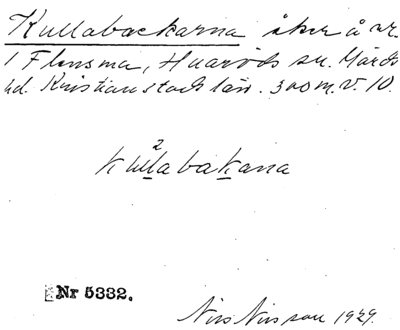 Kullabackarna åker å nr.
1 Flensma, Huaröds sn. Gärds
hd. Kristianstads län. 300 m. v. 10.
2
kullabakana
Nr 5332.
Nils Nilsson 1929.